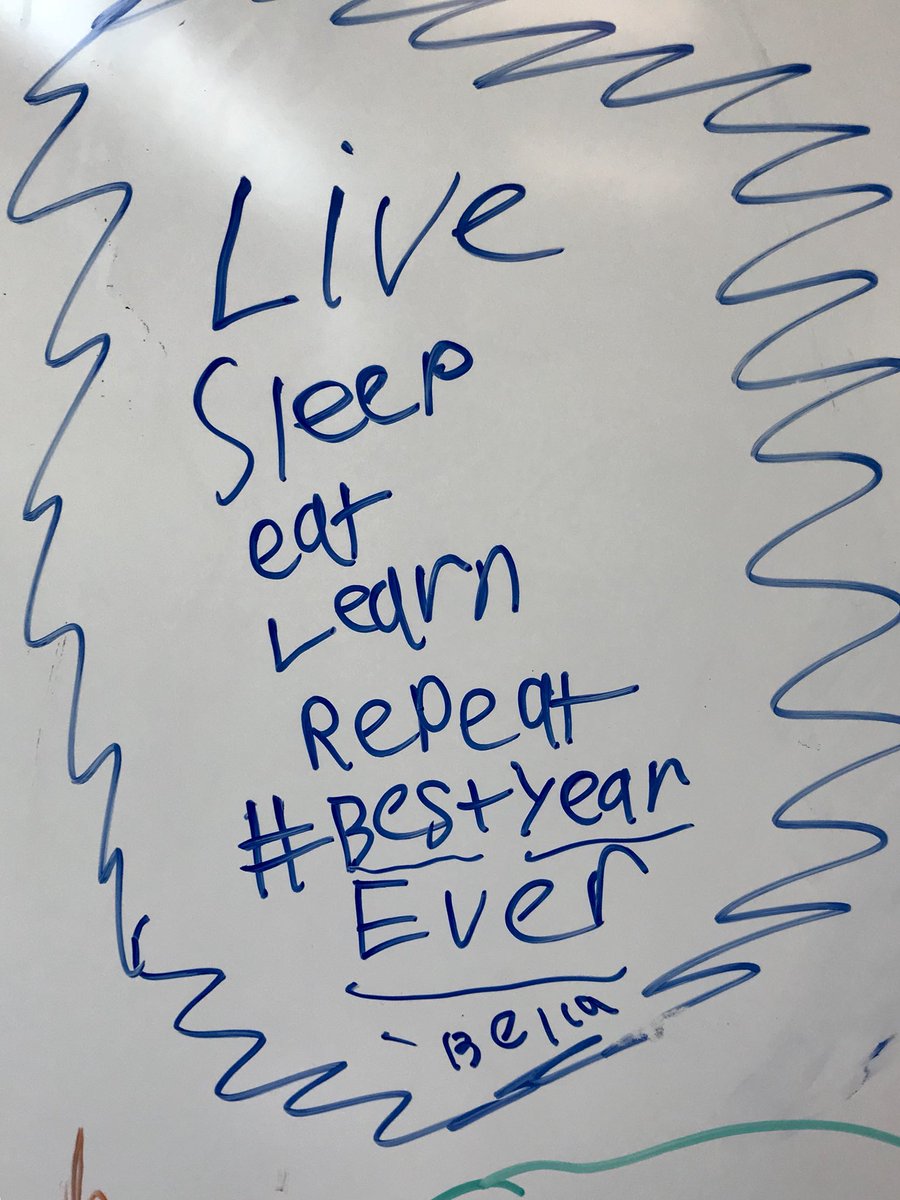 Live
Sleep
eat
Learn
Repeat
#BestYear
Ever
- Bella